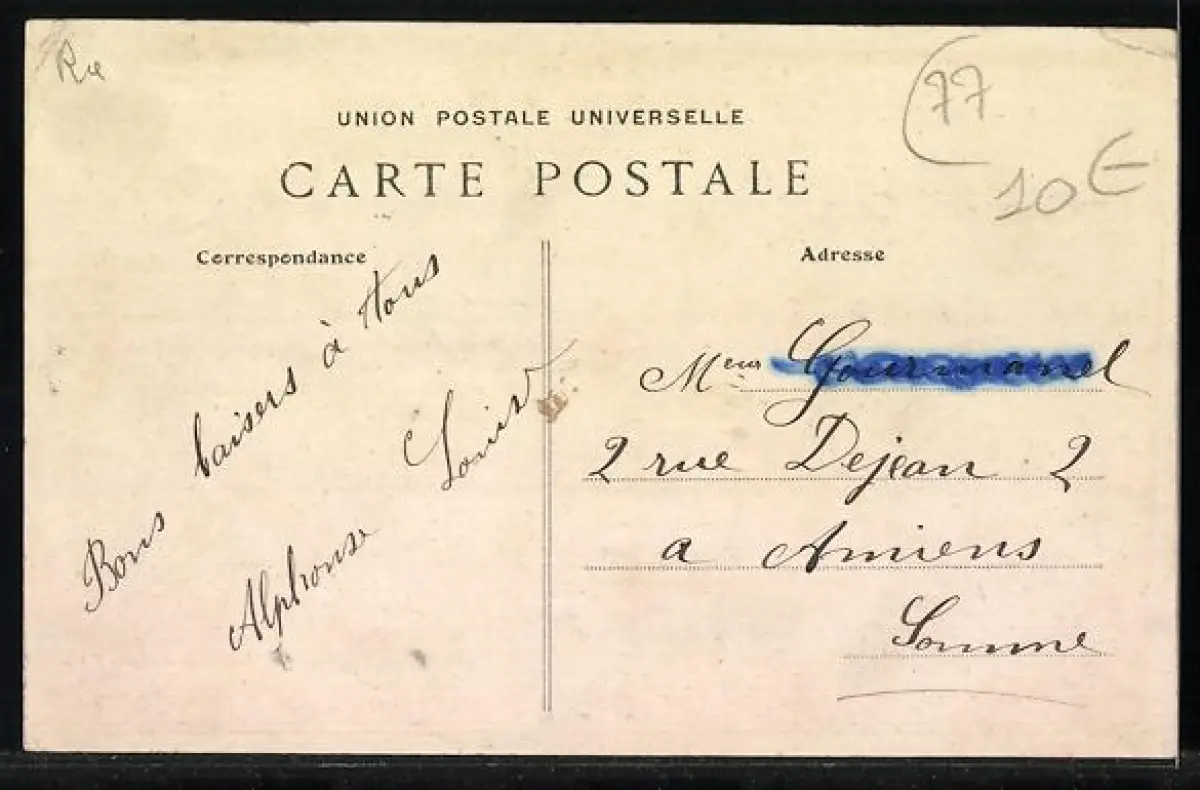 Rie
(77
10€
UNION POSTALE UNIVERSELLE
CARTE POSTALE
Correspondance
Bons baisers à tous
Alphonse Louise
Adresse
Meur Gourmanel
2 rue Dejean 2
a Amiens
Somme